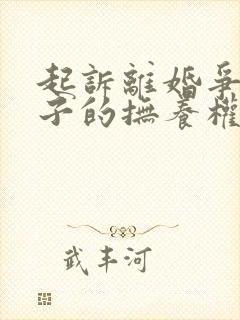 起訴離婚爭
子的撫養權
武丰河